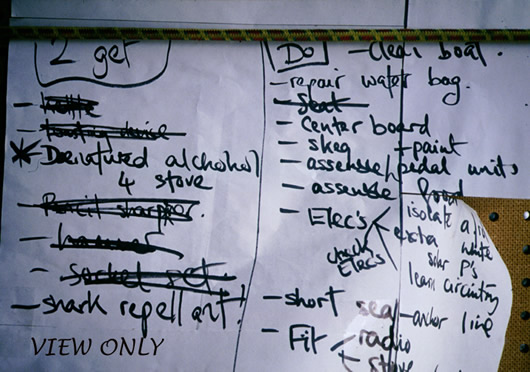 2 get
Denatured alchohol
4 stove
Pencil sharpper.
hammer
socket set
- shark repellant!
Do
- clean boat.
- repair water bag.
- Seat
- Center board
- skeg + paint
- assemble pedal units
- assemble food
- Elec's
isolate
extra white
solar P's
check Elec's
learn circuitry
- short seal - anchor line
- Fit radio
stove
VIEW ONLY